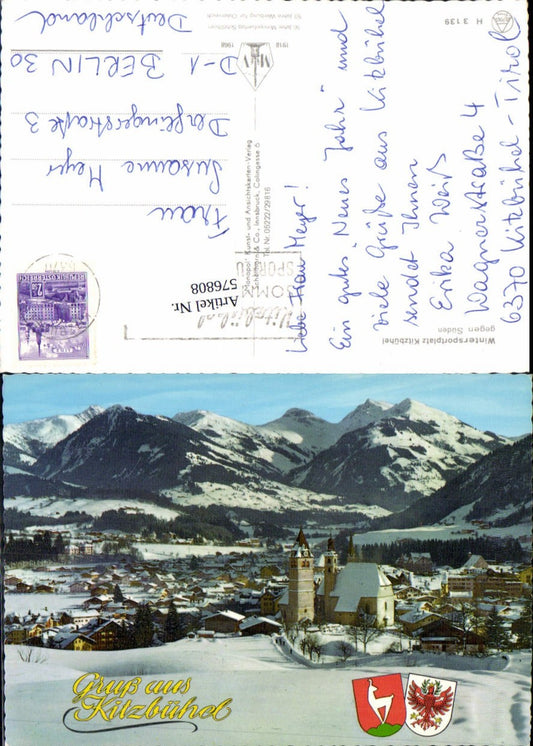 Liebe Frau Meyer!
Ein gutes "Neues Jahr" und
viele Grüße aus Kitzbühel
sendet Ihnen
Erika Weiß
Wagnerstraße 4
6370 Kitzbühel - Tirol
Frau
Susanne Meyer
Derflingerstraße 3
D-1 BERLIN 30
Deutschland
Wintersportplatz Kitzbühel
gegen Süden
H 3139
1918 1968
50 Jahre Werbung für Österreich
Monopol Kunst- und Ansichtskarten-Verlag
& Co., Innsbruck, Colingasse 6
Tel. Nr. 05222/29816
REPUBLIK ÖSTERREICH
Artikel Nr.
576808
Gruß aus
Kitzbühel